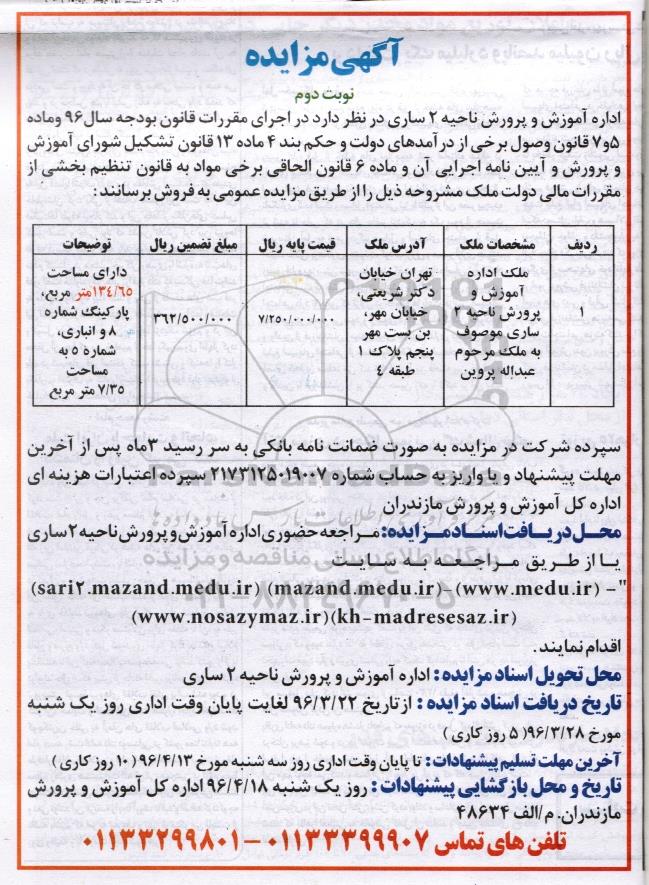 آگهی مزایده
نوبت دوم
اداره آموزش و پرورش ناحیه ۲ ساری در نظر دارد در اجرای مقررات قانون بودجه سال ۹۶ وماده
۵و۷ قانون وصول برخی از درآمدهای دولت و حکم بند ۴ ماده ۱۳ قانون تشکیل شورای آموزش
و پرورش و آیین نامه اجرایی آن و ماده ۶ قانون الحاقی برخی مواد به قانون تنظیم بخشی از
مقررات مالی دولت ملک مشروحه ذیل را از طریق مزایده عمومی به فروش برسانند:
ردیف مشخصات ملک آدرس ملک قیمت پایه ریال مبلغ تضمین ریال توضیحات
۱
ملک اداره
آموزش و
پرورش ناحیه ۲
ساری موصوف
به ملک مرحوم
عبداله پروین
تهران خیابان
دکتر شریعتی،
خیابان مهر،
بن بست مهر
پنجم پلاک ۱
طبقه ۴
۷/۲۵۰/۰۰۰/۰۰۰
۳۶۲/۵۰۰/۰۰۰
دارای مساحت
۱۳۴/۶۵متر مربع،
پارکینگ شماره
۸ و انباری،
شماره ۵ به
مساحت
۷/۳۵ متر مربع
سپرده شرکت در مزایده به صورت ضمانت نامه بانکی به سر رسید ۳ماه پس از آخرین
مهلت پیشنهاد و یا واریز به حساب شماره ۲۱۷۳۱۲۵۰۱۹۰۰۷ سپرده اعتبارات هزینه ای
اداره کل آموزش و پرورش مازندران
محل دریافت اسناد مزایده: مراجعه حضوری اداره آموزش و پرورش ناحیه ۲ ساری
یا از طریق مراجعه به سایت
"- (www.medu.ir)-(mazand.medu.ir) (sari۲.mazand.medu.ir)
(kh-madresesaz.ir)(www.nosazymaz.ir)
اقدام نمایند.
محل تحویل اسناد مزایده: اداره آموزش و پرورش ناحیه ۲ ساری
تاریخ دریافت اسناد مزایده: از تاریخ ۹۶/۳/۲۲ لغایت پایان وقت اداری روز یک شنبه
مورخ ۹۶/۳/۲۸(۵ روز کاری)
آخرین مهلت تسلیم پیشنهادات: تا پایان وقت اداری روز سه شنبه مورخ ۹۶/۴/۱۳(۱۰ روز کاری)
تاریخ و محل بازگشایی پیشنهادات: روز یک شنبه ۹۶/۴/۱۸ اداره کل آموزش و پرورش
مازندران. م/الف ۴۸۶۳۴
تلفن های تماس ۰۱۱۳۳۳۹۹۹۰۷-۰۱۱۳۳۲۹۹۸۰۱